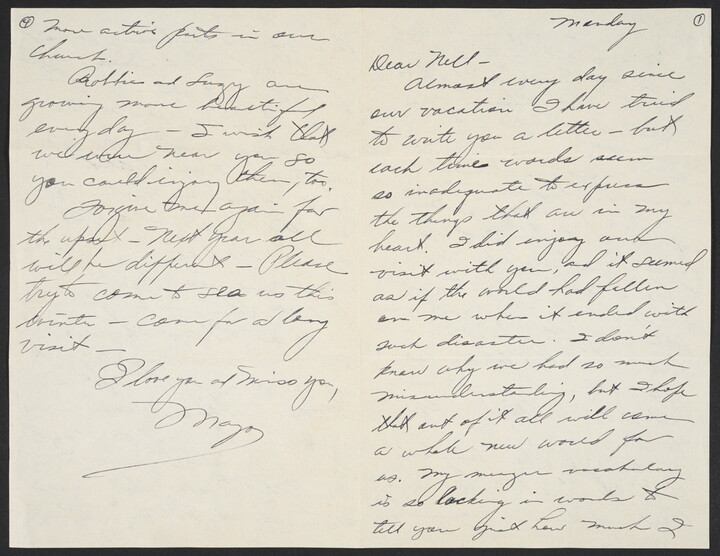 ①
Monday
Dear Nell -
Almost every day since
our vacation I have tried
to write you a letter - but
each time words seem
so inadequate to express
the things that are in my
heart. I did enjoy our
visit with you, and it seemed
as if the world had fallen
on me when it ended with
such disaster. I don't
know why we had so much
misunderstanding, but I hope
that out of it all will come
a whole new world for
us. My meager vocabulary
is so lacking in words to
tell you just how much I
④
more active parts in our
church.
Robbie and Suzy are
growing more beautiful
every day - I wish that
we were near you so
you could enjoy them, too.
Forgive me again for
the upset - Next year all
will be different - Please
try to come to see us this
winter - come for a long
visit -
I love you and miss you,